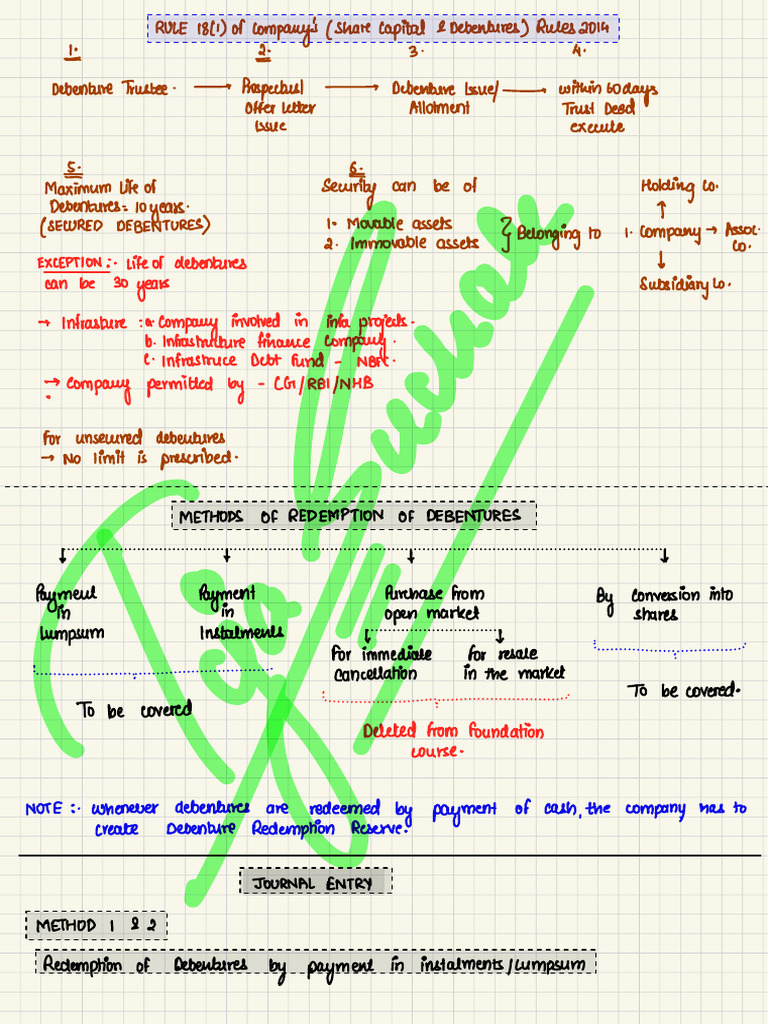 RULE 18(1) of Company's (Share Capital & Debentures) Rules 2014
1. 2. 3. 4.
Debenture Trustee. → Prospectus → Debenture Issue/ → within 60 days
Offer letter Allotment Trust Deed
Issue execute
5. 6.
Maximum life of Security can be of Holding Co.
Debentures = 10 years. ↑
(SECURED DEBENTURES) 1. Movable assets } Belonging to 1. Company → Assoc.
2. Immovable assets Co.
↓
EXCEPTION :- life of debentures Subsidiary Co.
can be 30 years
→ Infrasture : a. Company involved in infa projects.
b. Infrastructure finance company.
c. Infrastruce Debt Fund - NBFC.
→ Company permitted by - CG/RBI/NHB
For unsecured debentures
→ No limit is prescribed.
METHODS OF REDEMPTION OF DEBENTURES
Payment Payment Purchase from By conversion into
in in open market shares
Lumpsum Instalments
For immediate For resale
Cancellation in the market
To be covered To be covered.
Deleted from foundation
course.
NOTE :- whenever debentures are redeemed by payment of cash, the company has to
create Debenture Redemption Reserve.
JOURNAL ENTRY
METHOD 1 & 2
Redemption of Debentures by payment in instalments/Lumpsum